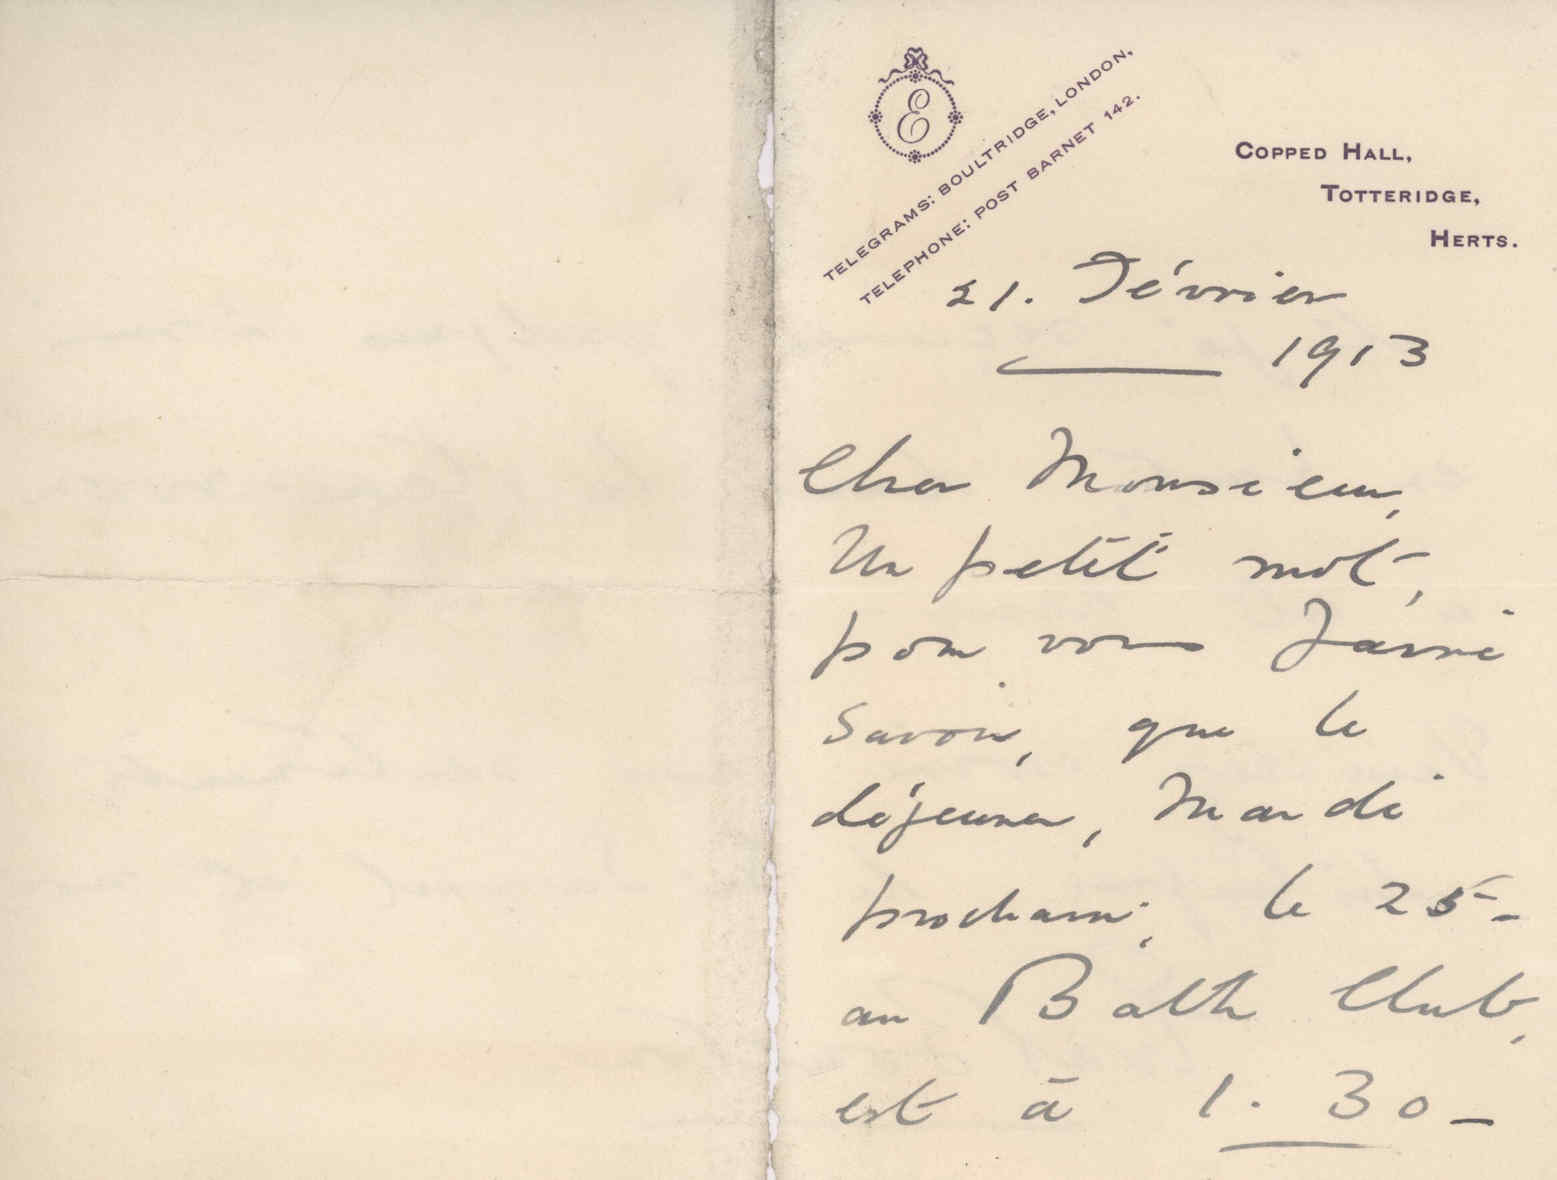 E
TELEGRAMS: BOULTRIDGE, LONDON.
TELEPHONE: POST BARNET 142.
COPPED HALL,
TOTTERIDGE,
HERTS.
21. Février
1913
Cher Monsieur,
Un petit mot,
pour vous faire
savoir, que le
déjeuner, Mardi
prochain, le 25-
au Bath Club,
est à 1.30-